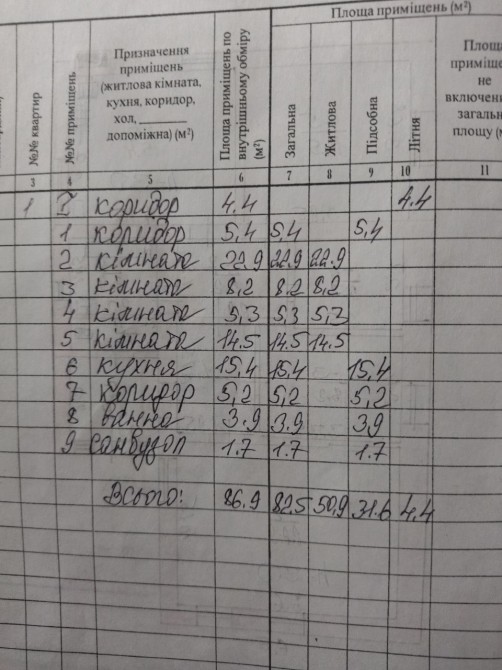 Площа приміщень (м²)
№№ квартир
№№ приміщень
Призначення
приміщень
(житлова кімната,
кухня, коридор,
хол, ________
допоміжна) (м²)
Площа приміщень по
внутрішньому обміру
(м²)
Загальна
Житлова
Підсобна
Літня
Площа
приміще
не
включен
загальн
площу (м
3 4 5 6 7 8 9 10 11
1 I коридор 4.4 4.4
1 коридор 5,4 5,4 5,4
2 кімната 22.9 22.9 22.9
3 кімната 8,2 8.2 8,2
4 кімната 5,3 5,3 5,3
5 кімната 14.5 14.5 14.5
6 кухня 15,4 15.4 15,4
7 коридор 5,2 5,2 5,2
8 ванна 3.9 3.9 3.9
9 санвузол 1.7 1.7 1.7
Всього: 86.9 82.5 50.9 31.6 4.4